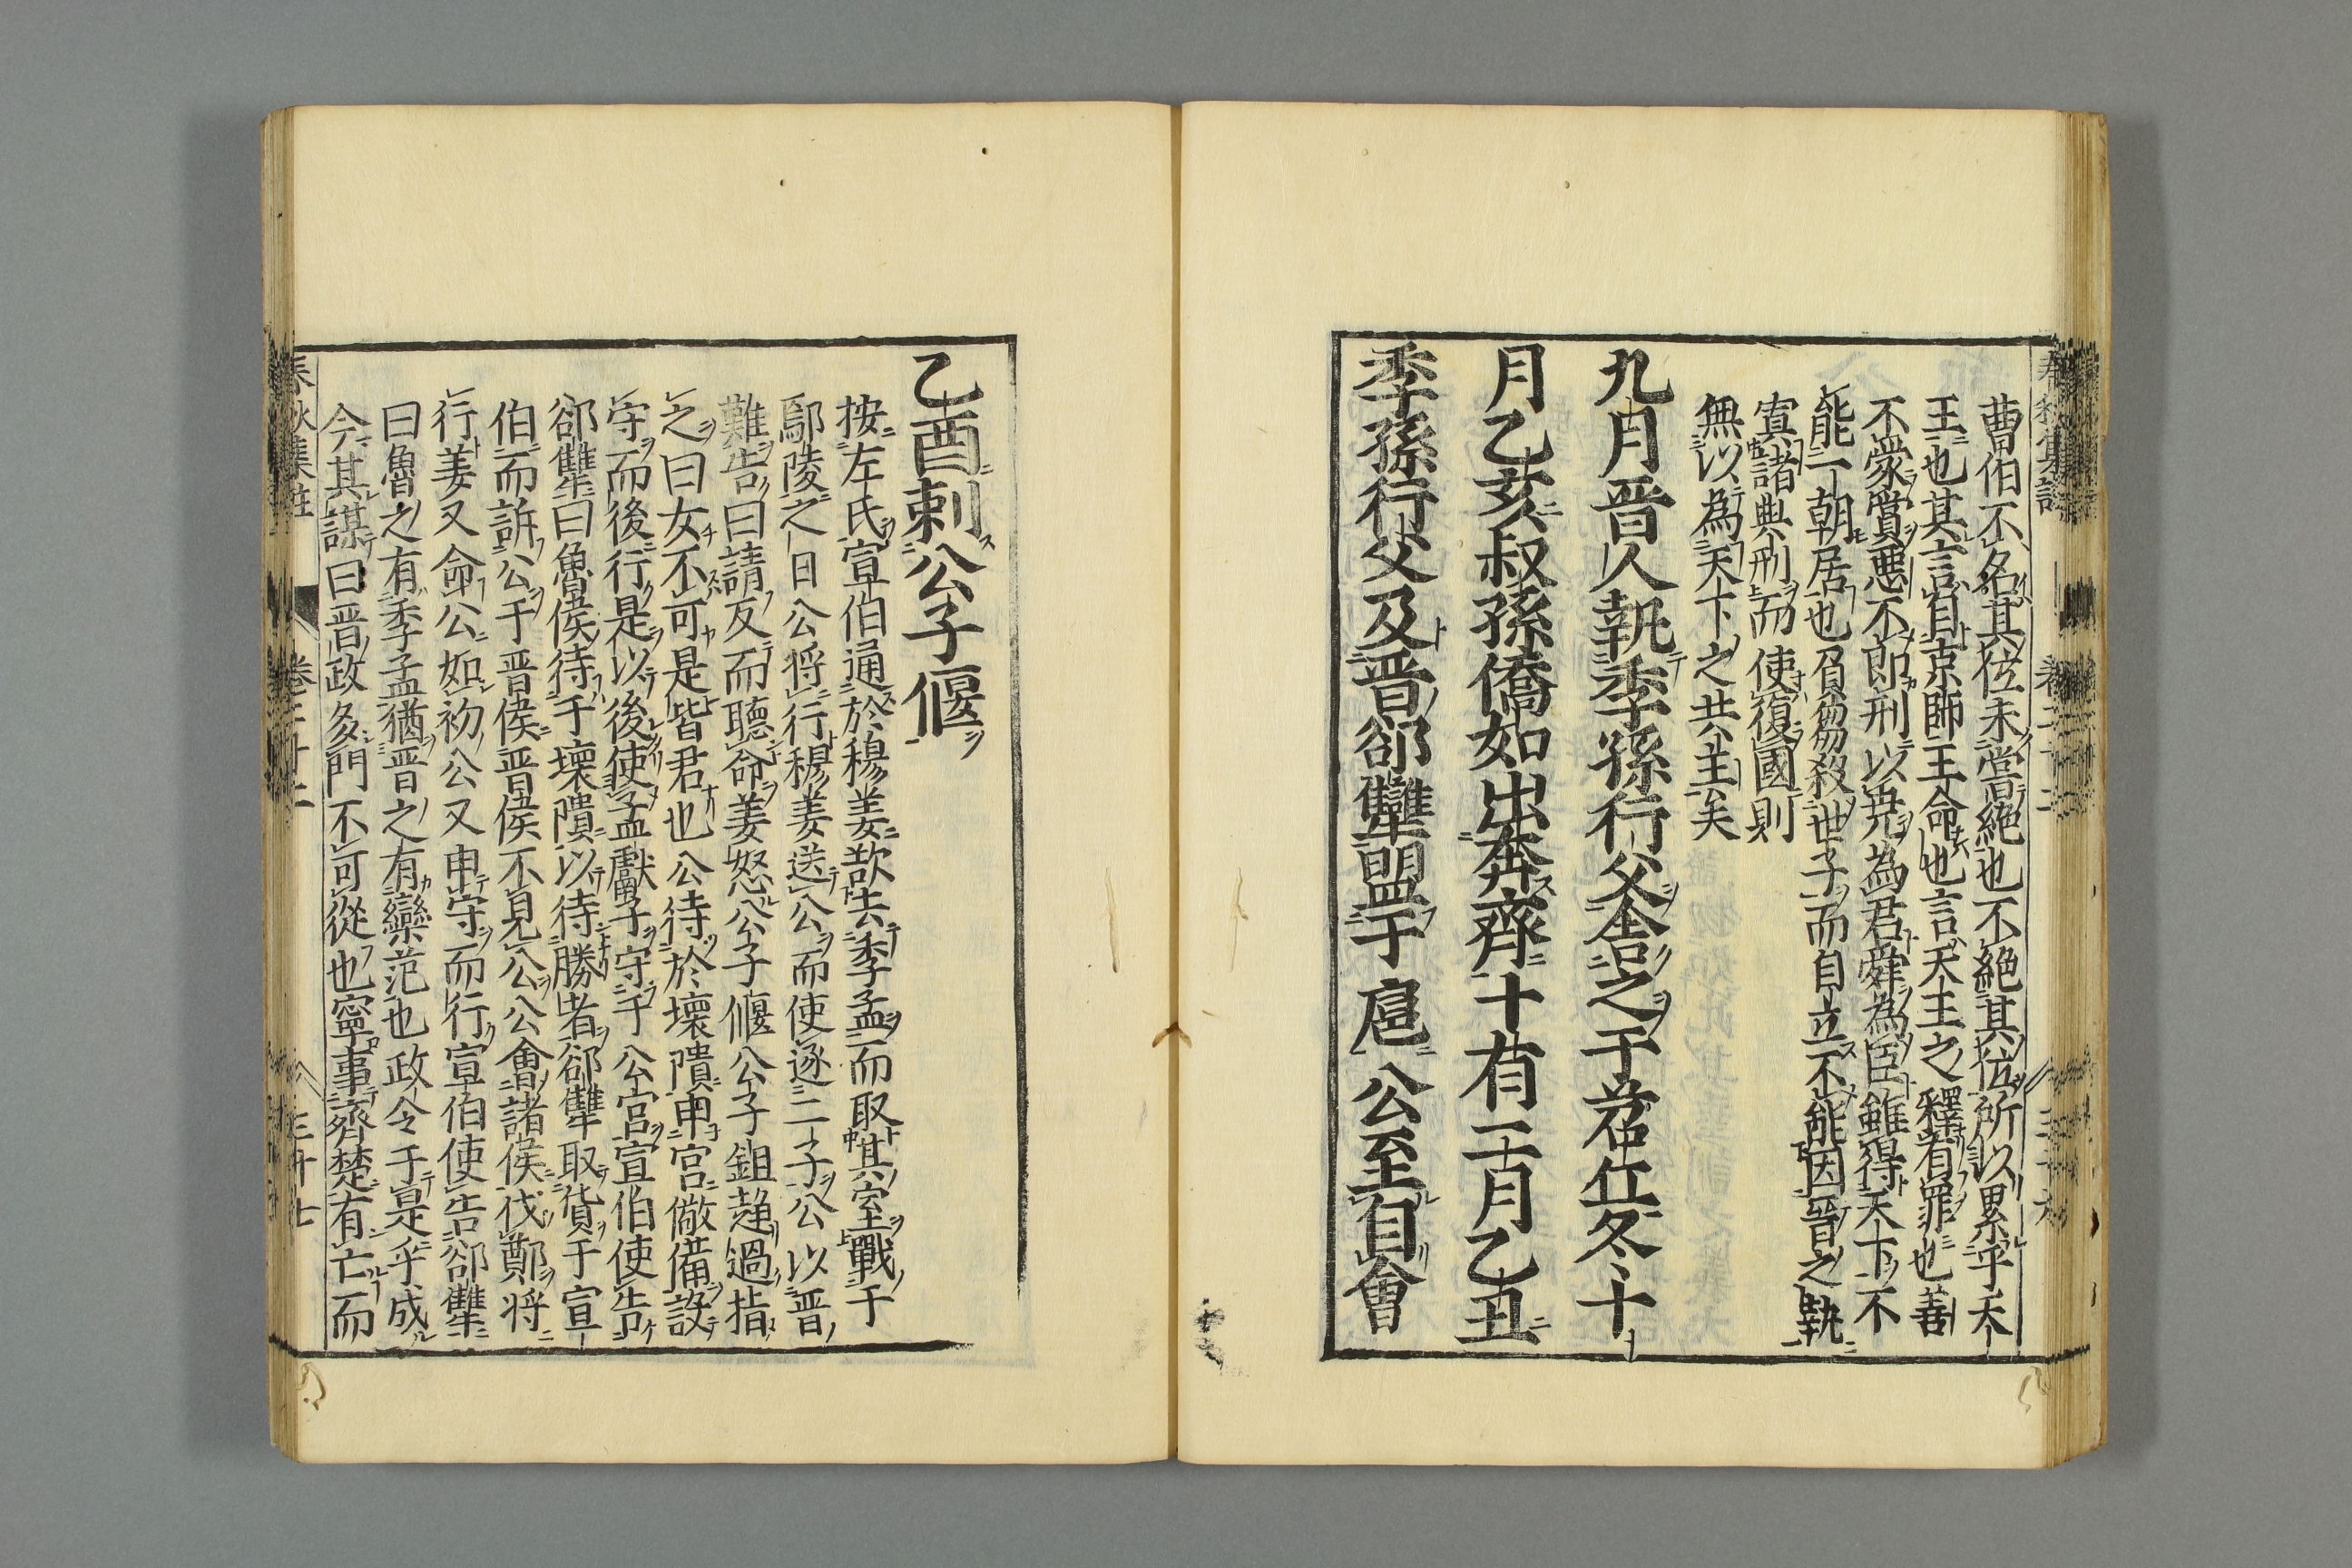 曹伯不名其位未嘗絶也不絶其位所以累乎天
王也其言自京師王命也言天王之釋有罪也善
不蒙賞惡不即刑以堯為君舜為臣雖得天下不
能一朝居也負芻殺世子而自立不能因晉之執
寘諸典刑而使復國則
無以為天下之共主矣
九月晉人執季孫行父舍之于苕丘冬十
月乙亥叔孫僑如出奔齊十有二月乙丑
季孫行父及晉郤犨盟于扈公至自會
乙酉刺公子偃
按左氏宣伯通於穆姜欲去季孟而取其室戰于
鄢陵之日公將行穆姜送公而使逐二子公以晉
難告曰請反而聽命姜怒公子偃公子鉏趨過指
之曰女不可是皆君也公待於壞隤申宮儆備設
守而後行是以後使孟獻子守于公宮宣伯使告
郤犨曰魯侯待于壞隤以待勝者郤犨取貨于宣
伯而訴公于晉侯晉侯不見公公會諸侯伐鄭將
行姜又命公如初公又申守而行宣伯使告郤犨
曰魯之有季孟猶晉之有欒范也政令于是乎成
今其謀曰晉政多門不可從也寧事齊楚有亡而
春秋集註 卷二十二 三十七